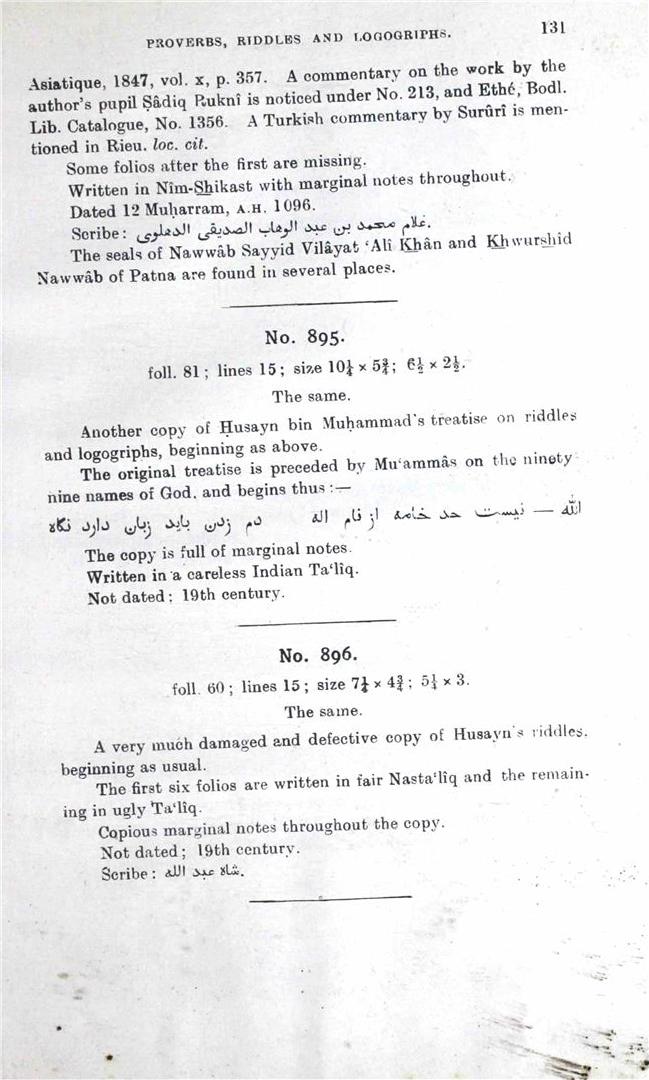 PROVERBS, RIDDLES AND LOGOGRIPHS. 131
Asiatique, 1847, vol. x, p. 357. A commentary on the work by the
author's pupil Ṣâdiq Ruknî is noticed under No. 213, and Ethé, Bodl.
Lib. Catalogue, No. 1356. A Turkish commentary by Surûrî is men-
tioned in Rieu. loc. cit.
Some folios after the first are missing.
Written in Nîm-Shikast with marginal notes throughout.
Dated 12 Muḥarram, A.H. 1096.
Scribe: غلام محمد بن عبد الوهاب الصديقي الدهلوى.
The seals of Nawwâb Sayyid Vilâyat ‘Alî Khân and Khwurshîd
Nawwâb of Patna are found in several places.
No. 895.
foll. 81; lines 15; size 10¼ × 5¾; 6½ × 2½.
The same.
Another copy of Ḥusayn bin Muḥammad's treatise on riddles
and logogriphs, beginning as above.
The original treatise is preceded by Mu‘ammâs on the ninety-
nine names of God. and begins thus:—
الله — نيست حد خامه از نام اله دم زدن بايد زبان دارد نگاه
The copy is full of marginal notes.
Written in a careless Indian Ta‘lîq.
Not dated; 19th century.
No. 896.
foll. 60; lines 15; size 7¼ × 4¾; 5¼ × 3.
The same.
A very much damaged and defective copy of Husayn's riddles.
beginning as usual.
The first six folios are written in fair Nasta‘lîq and the remain-
ing in ugly Ta‘lîq.
Copious marginal notes throughout the copy.
Not dated; 19th century.
Scribe: شاه عبد الله.